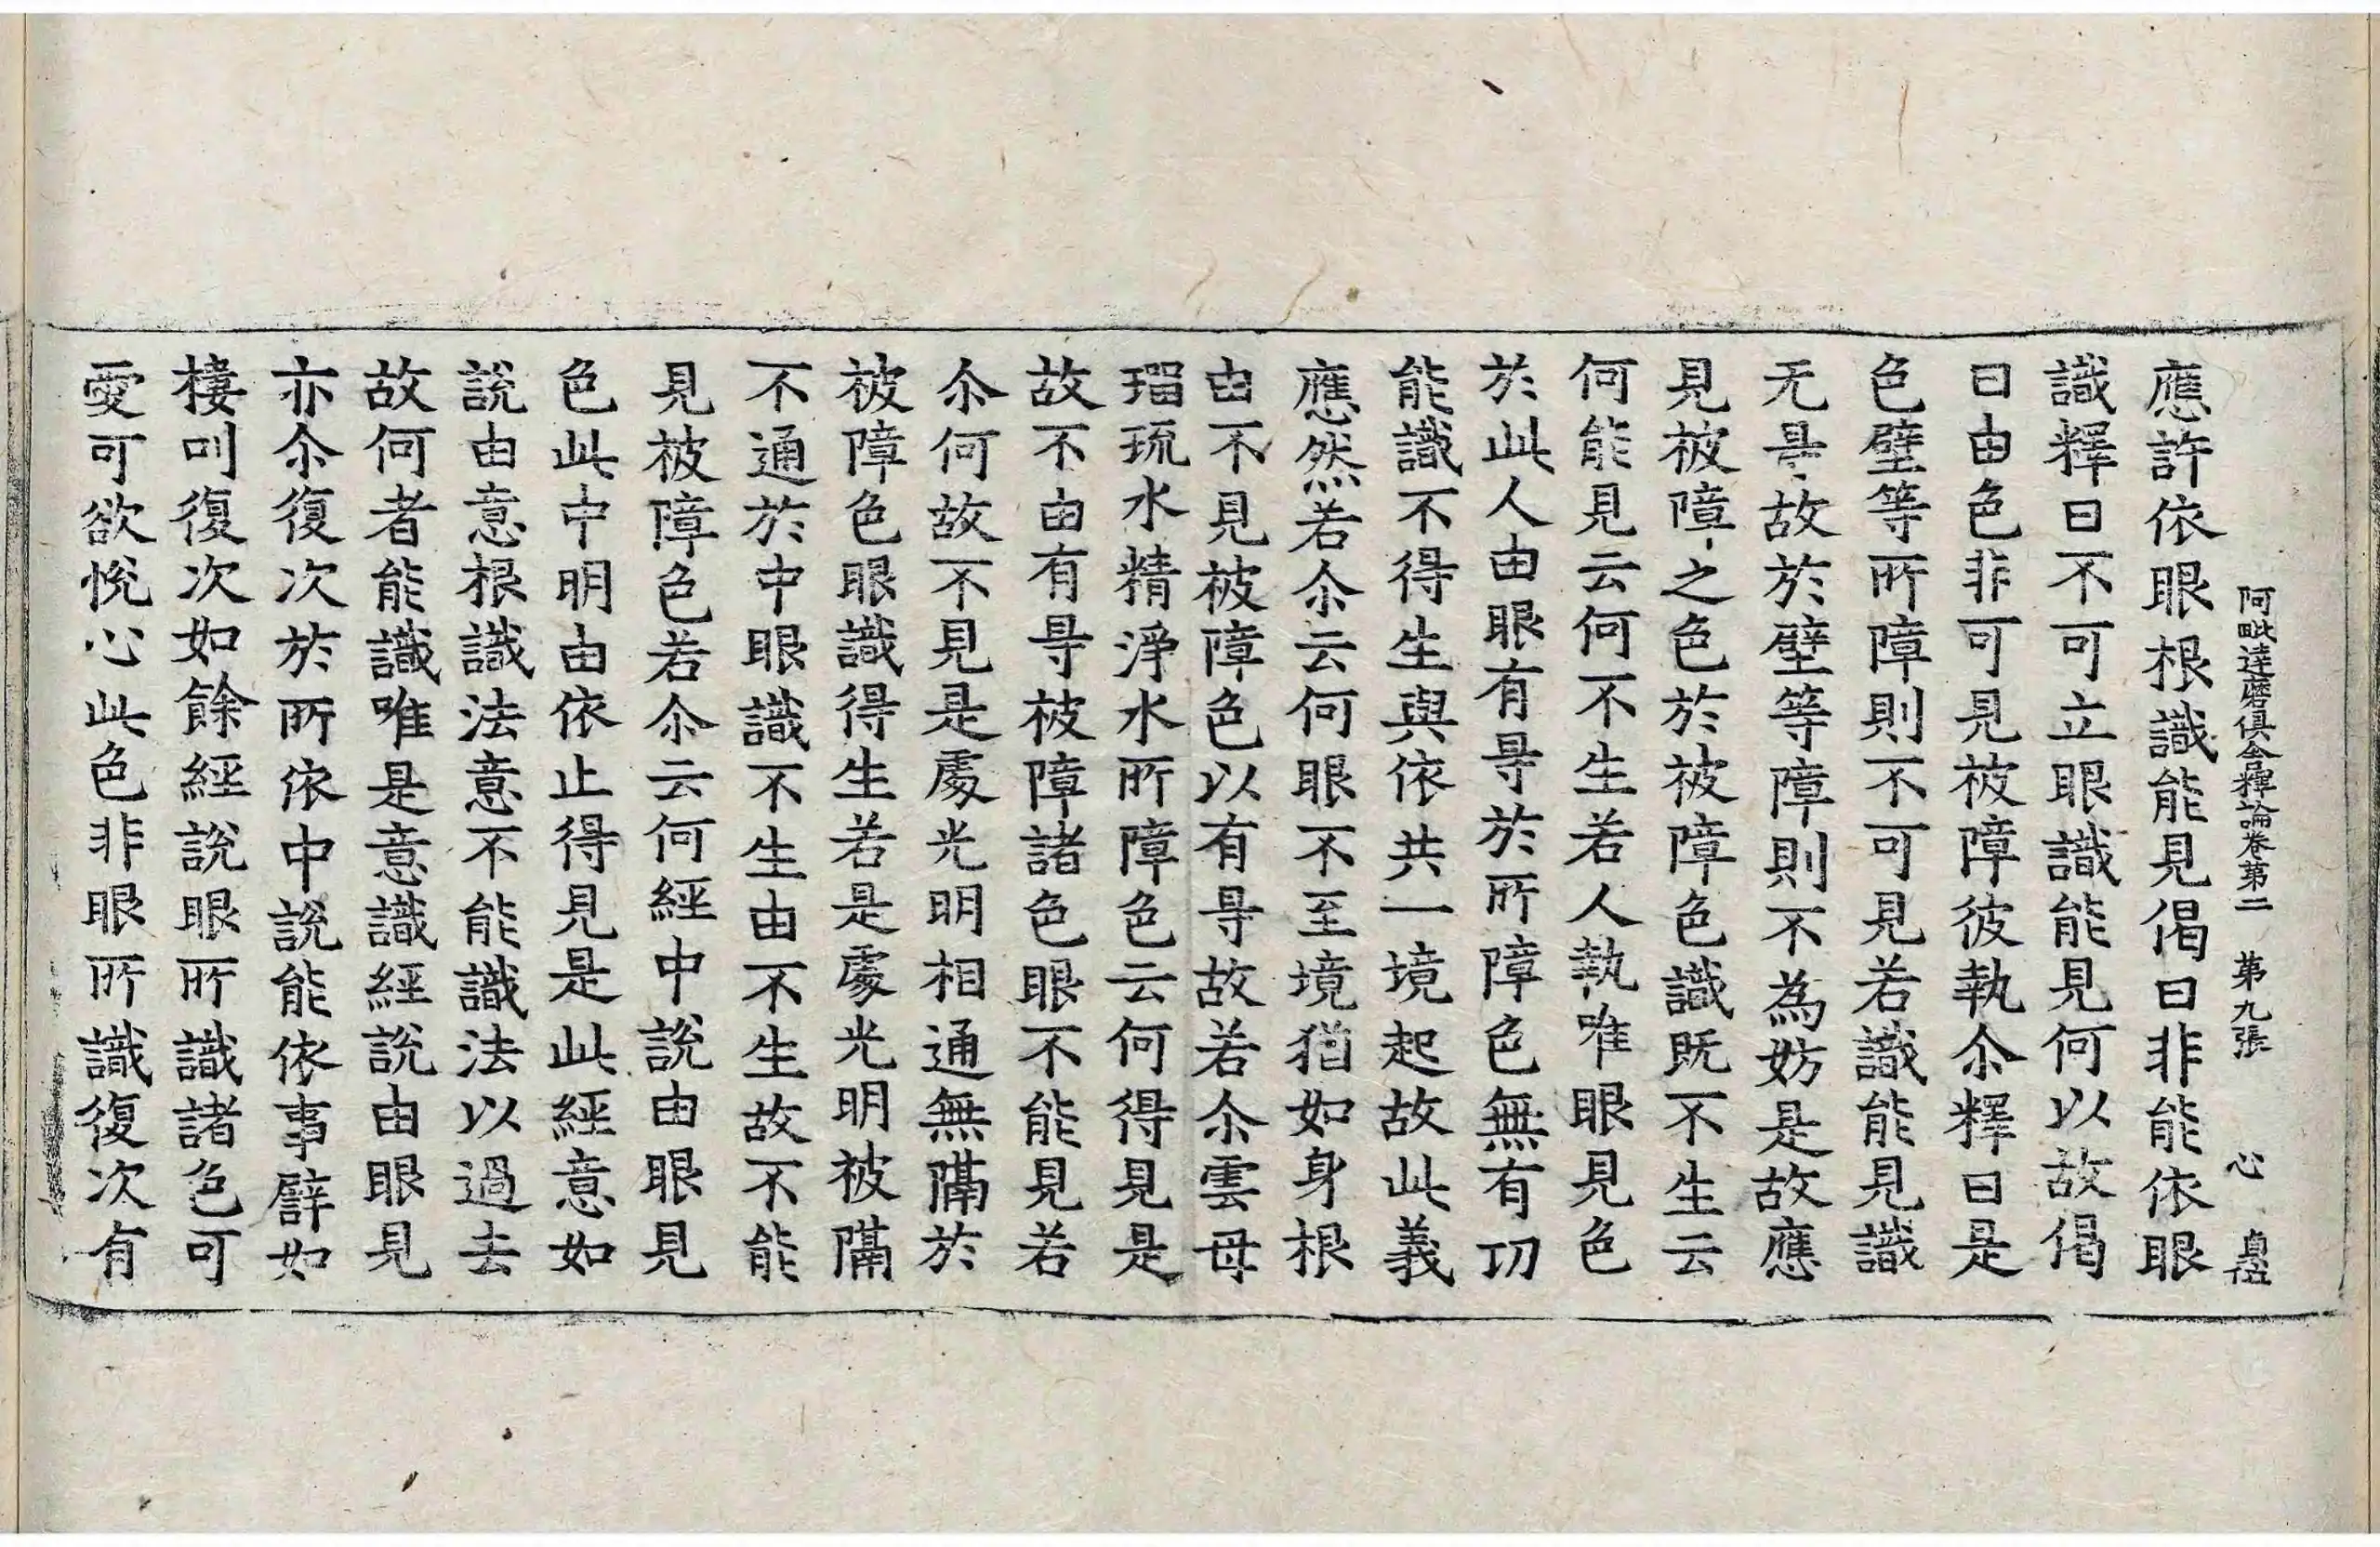 阿毗達磨俱舍釋論卷第二 第九張 心
應許依眼根識能見偈曰非能依眼
識釋曰不可立眼識能見何以故偈
曰由色非可見被障彼執尒釋曰是
色壁等所障則不可見若識能見識
无㝵故於壁等障則不為妨是故應
見被障之色於被障色識既不生云
何能見云何不生若人執唯眼見色
於此人由眼有㝵於所障色無有功
能識不得生與依共一境起故此義
應然若尒云何眼不至境猶如身根
由不見被障色以有㝵故若尒雲母
瑠琉水精淨水所障色云何得見是
故不由有㝵被障諸色眼不能見若
尒何故不見是處光明相通無隔於
被障色眼識得生若是處光明被隔
不通於中眼識不生由不生故不能
見被障色若尒云何經中說由眼見
色此中明由依止得見是此經意如
說由意根識法意不能識法以過去
故何者能識唯是意識經說由眼見
亦尒復次於所依中說能依事譬如
棲叫復次如餘經說眼所識諸色可
愛可欲悅心此色非眼所識復次有